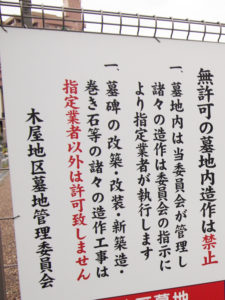 無許可の墓地内造作は禁止
一、墓地内は当委員会が管理し
諸々の造作は委員会の指示に
より指定業者が執行します
一、墓碑の改築・改装・新築造・
巻き石等の諸々の造作工事は
指定業者以外は許可致しません
木屋地区墓地管理委員会
墓地